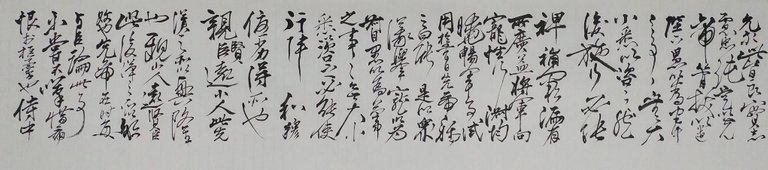 允等此皆良實志
慮忠純是以先
帝簡拔以遺
陛下愚以為宮中
之事事無大
小悉以咨之然
後施行必能
裨補闕漏有
所廣益將軍向
寵性行淑均
曉暢軍事試
用於昔日先帝稱
之曰能是以眾
議舉寵以為
督愚以為營中
之事事無大小
悉咨之必能使
行陣和穆
優劣得所也
親賢臣遠小人此先
漢之所以興隆
也親小人遠賢臣
此後漢之所以傾
頹也先帝在時每
與臣論此事
未嘗不嘆息痛
恨於桓靈也侍中